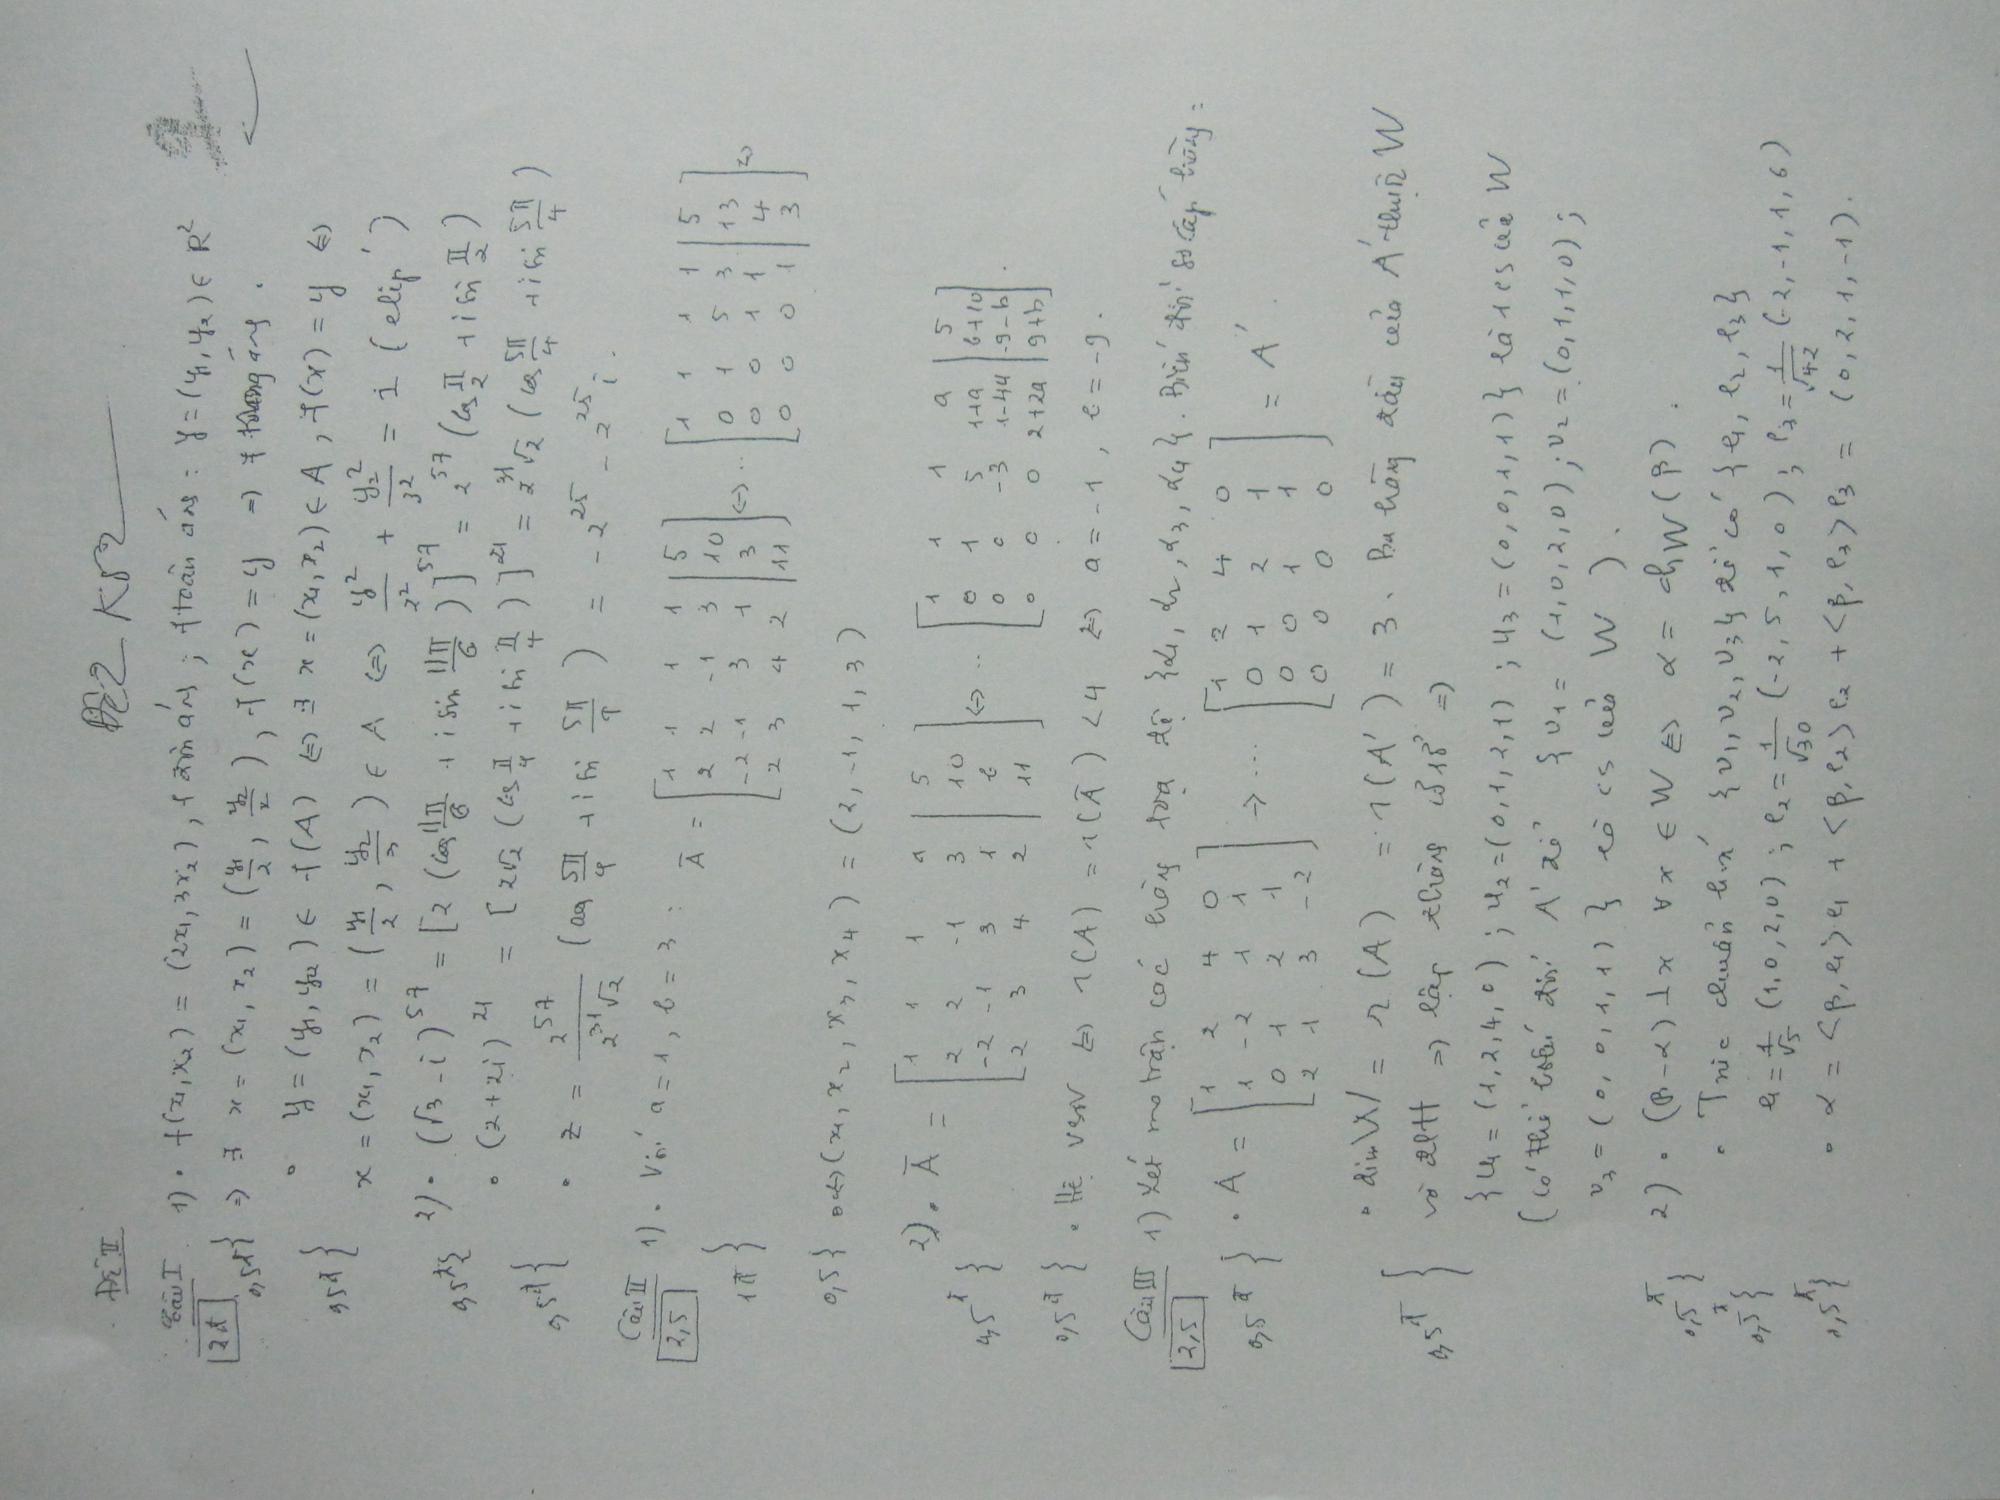 Đề II
Đề 2 K52
Câu I 1) • f(x₁,x₂) = (2x₁, 3x₂), f đơn ánh; f toàn ánh: y = (y₁, y₂) ∈ R²
2đ
0,5đ} => ∃ x = (x₁, x₂) = (y₁/2, y₂/2), f(x) = y => f song ánh.
0,5đ{ • y = (y₁, y₂) ∈ f(A) <=> ∃ x = (x₁, x₂) ∈ A, f(x) = y <=>
x = (x₁, x₂) = (y₁/2, y₂/3) ∈ A <=> y²/2² + y₂²/3² = 1 (elip)
0,5đ{ 2) • (√3 - i)^57 = [2 (cos 11π/6 + i sin 11π/6)]^57 = 2^57 (cos π/2 + i sin π/2)
• (2+2i)^21 = [2√2 (cos π/4 + i sin π/4)]^21 = 2^31 √2 (cos 5π/4 + i sin 5π/4)
0,5đ{ • z = 2^57/(2^31 √2) (cos 5π/4 + i sin 5π/4) = -2^25 - 2^25 i.
Câu II 1) • Với a = 1, b = 3 :
2,5
1đ} Ā = [1 1 1 1 | 5] <-> .. [1 1 1 1 | 5] <->
[2 2 -1 3 | 10] [0 1 5 3 | 13]
[-2 -1 3 1 | 3] [0 0 1 1 | 4]
[2 3 4 2 | 11] [0 0 0 1 | 3]
0,5} <-> (x₁, x₂, x₃, x₄) = (2, -1, 1, 3)
2) • Ā = [1 1 1 a | 5] <-> .. [1 1 1 a | 5]
0,5đ{ [2 2 -1 3 | 10] [0 1 5 1+2a | b+10]
[-2 -1 3 1 | b] [0 0 -3 1-4a | -9-b] .
[2 3 4 2 | 11] [0 0 0 2+2a | 9+b]
0,5đ{ • Hệ VSN <=> r(A) = r(Ā) < 4 <=> a = -1, b = -9.
Câu III 1) Xét ma trận các hàng tọa độ {α₁, α₂, α₃, α₄}. Biến đổi sơ cấp hàng:
2,5
0,5đ} • A = [1 2 4 0] -> ... [1 2 4 0] = A'.
[1 -2 1 1] [0 1 2 1]
[0 1 2 1] [0 0 1 1]
[2 1 3 -2] [0 0 0 0]
• dim W = r(A) = r(A') = 3. Ba hàng đầu của A' thuộc W
0,5đ{ và ĐLTT => lập thành cơ sở =>
{u₁ = (1,2,4,0); u₂ = (0,1,2,1); u₃ = (0,0,1,1)} là 1 cs của W
(Có thể biến đổi A' để {v₁ = (1,0,2,0); v₂ = (0,1,1,0);
v₃ = (0, 0, 1, 1)} là cs của W).
0,5đ{ 2) • (β-α) ⊥ x ∀x ∈ W <=> α = ch_W(β).
0,5đ{ • Trực chuẩn hoá {v₁, v₂, v₃} để có {e₁, e₂, e₃}
e₁ = 1/√5 (1,0,2,0); e₂ = 1/√30 (-2, 5, 1, 0); e₃ = 1/√42 (-2, -1, 1, 6)
0,5đ{ • α = <β, e₁>e₁ + <β, e₂>e₂ + <β, e₃>e₃ = (0, 2, 1, -1).